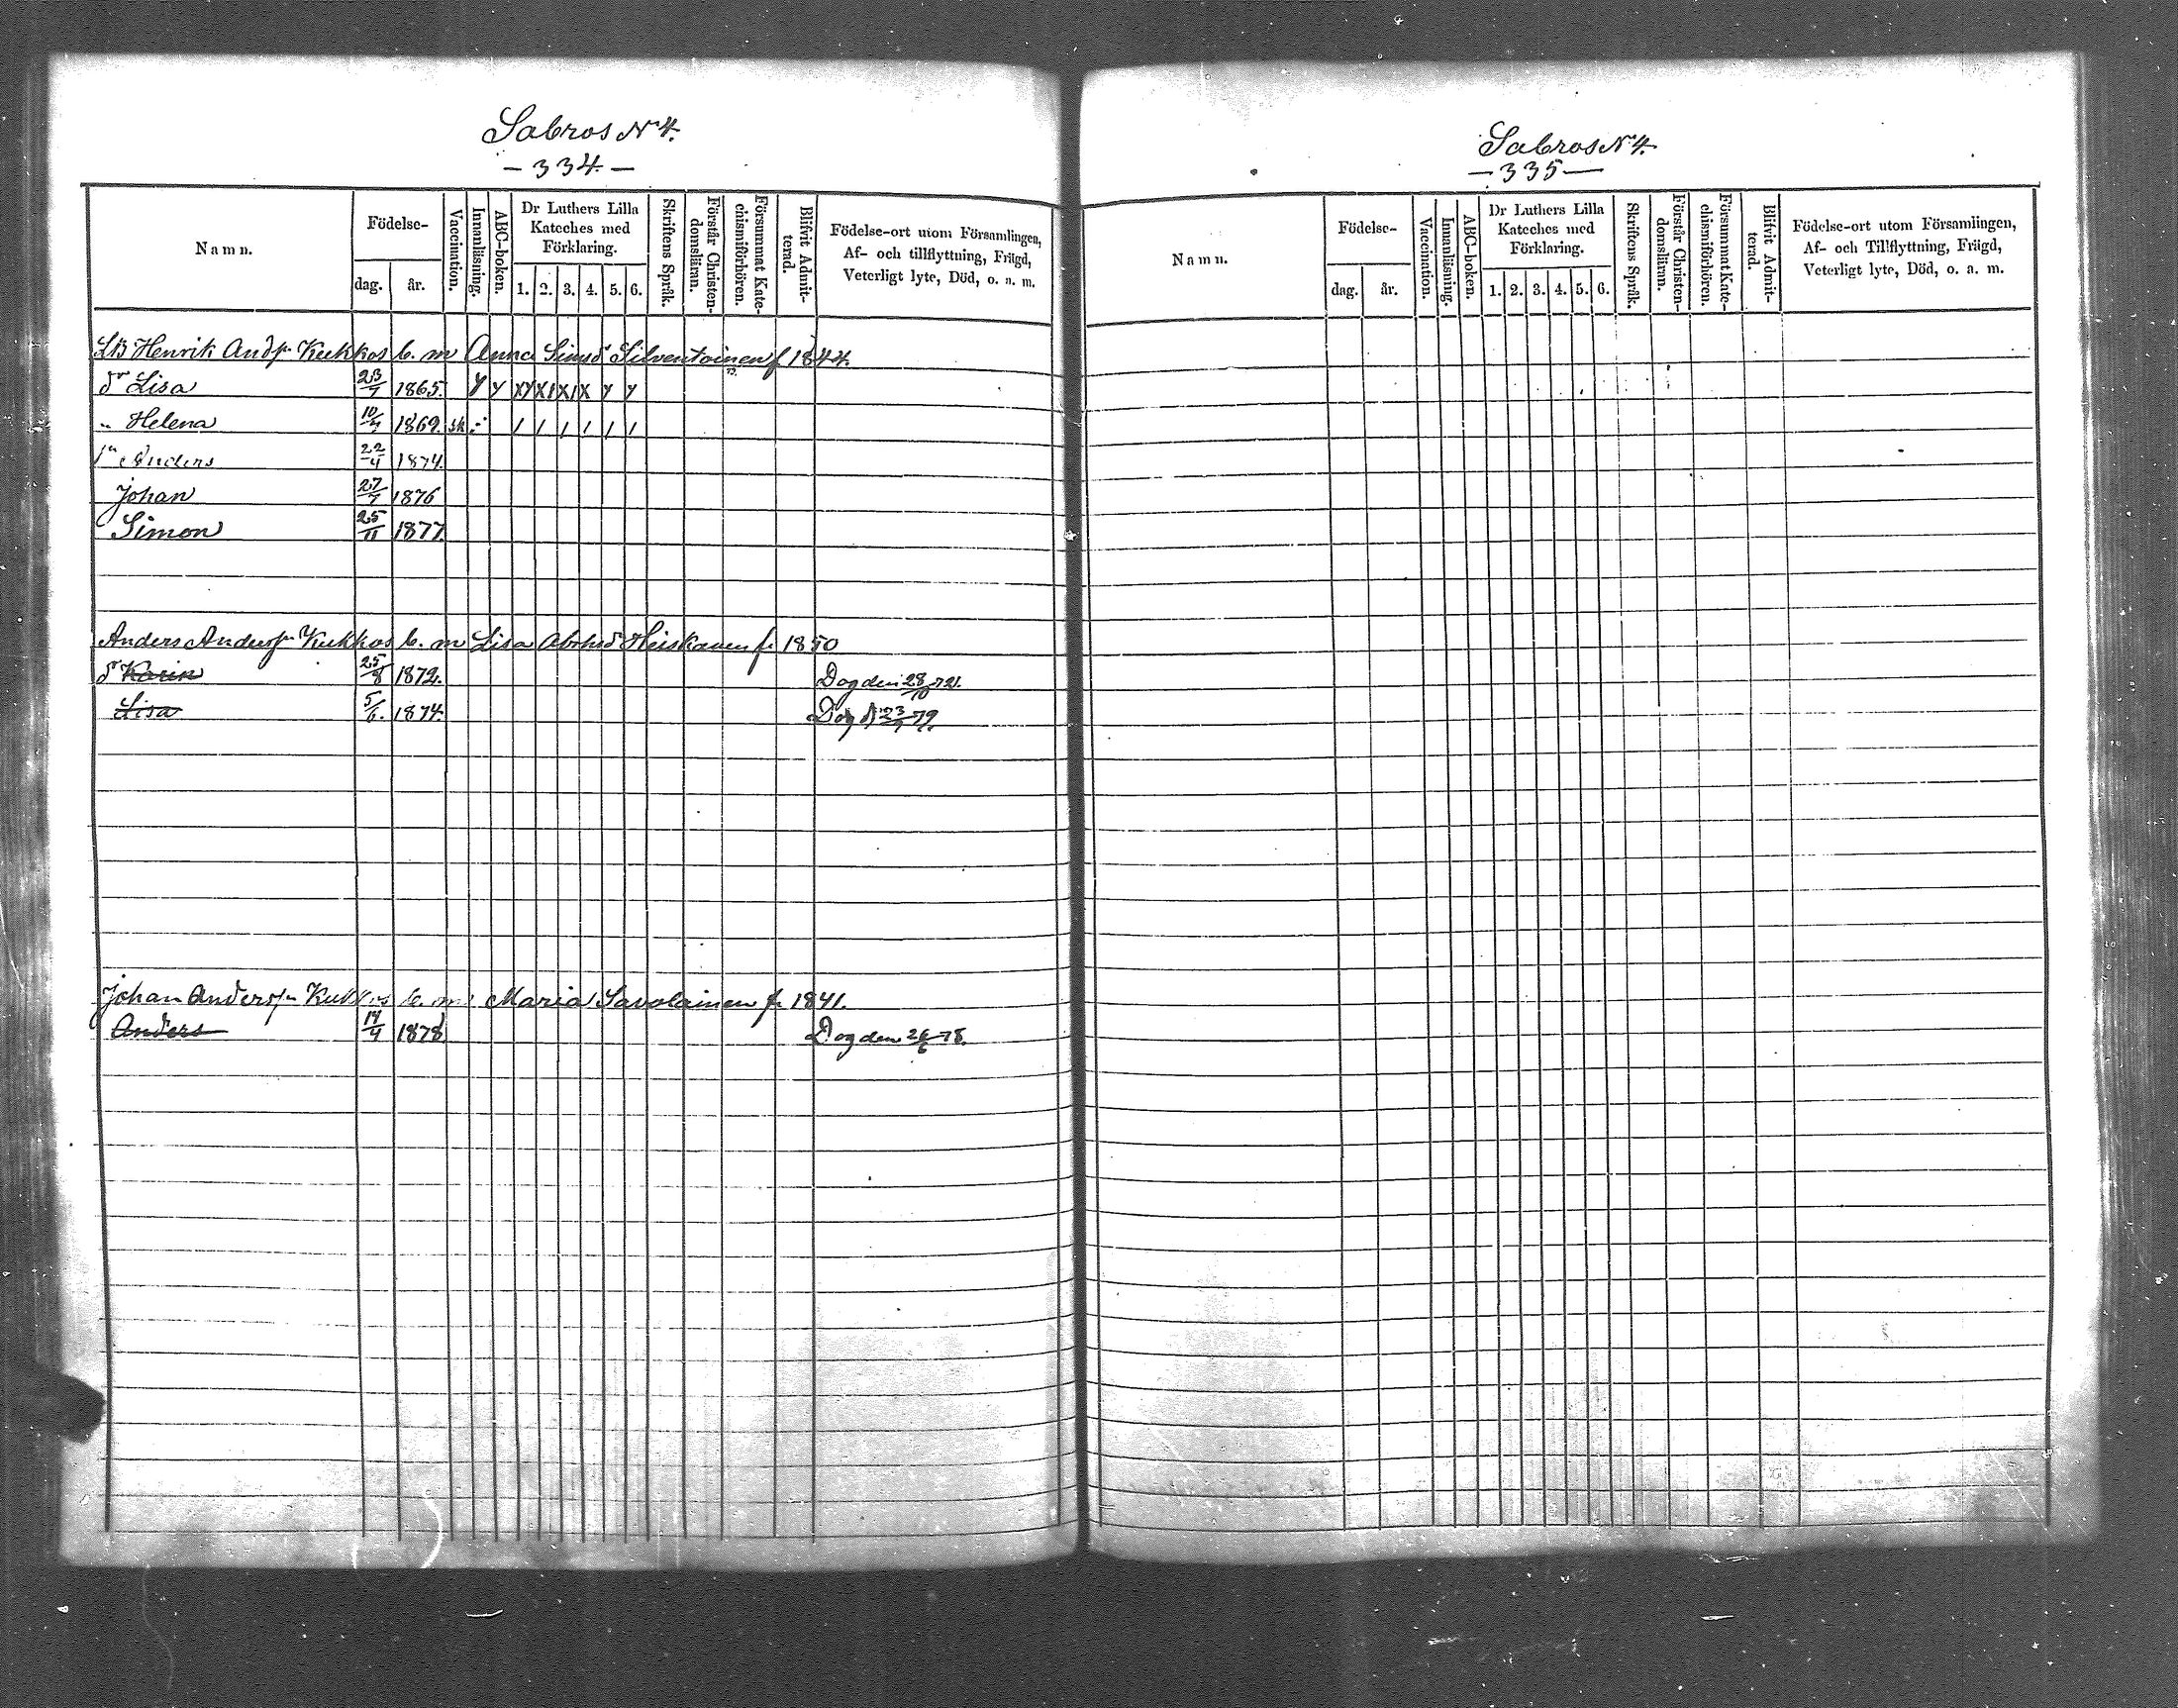 Sabros N 4.
- 334. -
Namn.
Födelse-
dag.
år.
Vaccination.
Innanläsning.
ABC-boken.
Dr Luthers Lilla
Kateches med
Förklaring.
1. 2. 3. 4. 5. 6.
Skriftens Språk.
Förstår Christen-
domsläran.
Försummat Kate-
chismiförhören.
Blifvit Admit-
terad.
Födelse-ort utom Församlingen,
Af- och tillflyttning, Frägd,
Veterligt lyte, Död, o. a. m.
Henrik Andp. Kukkos b. m Anna Simsd Silventoinen f 1844.
dr Lisa 23/7 1865. y y xy x1 x1 x y y
" Helena 10/4 1869. sk / / / / / /
Anders 22/4 1874.
Johan 27/7 1876
Simon 25/11 1877.
Anders Andersp Kukkos b. m Lisa Abrhsd Heiskanen f. 1850
dr Karin 25/8 1872. Dog den 28/10 72.
Lisa 5/6. 1874. Dog d 23/9 79.
Johan Andersp Kukkos b. m. Maria Savolainen f. 1841.
Anders 14/4 1878 Dog den 26/6 78.
Sabros N 4.
- 335 -
Namn.
Födelse-
dag.
år.
Vaccination.
Innanläsning.
ABC-boken.
Dr Luthers Lilla
Kateches med
Förklaring.
1. 2. 3. 4. 5. 6.
Skriftens Språk.
Förstår Christen-
domsläran.
Försummat Kate-
chismiförhören.
Blifvit Admit-
terad.
Födelse-ort utom Församlingen,
Af- och Tillflyttning, Frägd,
Veterligt lyte, Död, o. a. m.